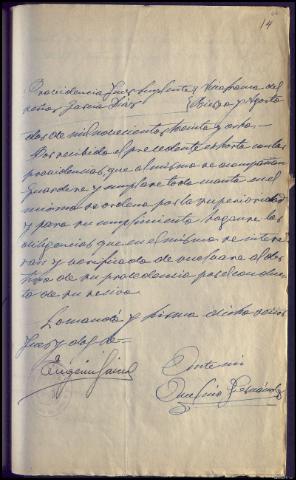 14
Providencia Juez Suplente Villafranca del
señor García Díaz Bierzo y Agosto
dos de mil novecientos treinta y ocho.—
Por recibido el precedente exhorto con las
providencias, que al mismo se acompañan
guardese y cumplase todo cuanto en el
mismo se ordena por la superioridad
y para su cumplimiento haganse las
diligencias que en el mismo se intere
san y verificado devuelvase al des
tino de su procedencia por el conduc
to de su recivo.
Lo mandó y firma dicho señor
Juez y doy fe—
Eugenio García
Ante mi
Fernández